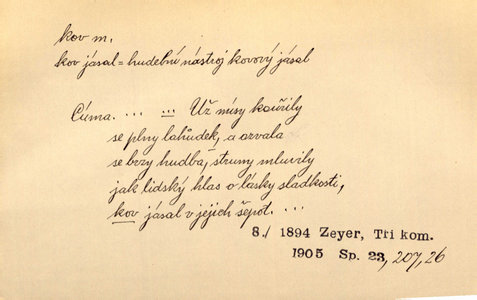 kov m.
kov jásal = hudební nástroj kovový jásal
Cúma. ... ... Už mísy kouřily
se plny lahůdek, a ozvala
se brzy hudba, struny mluvily
jak lidský hlas o lásky sladkosti,
kov jásal v jejich šepot. ...
8./ 1894 Zeyer, Tři kom.
1905 Sp. 23, 207, 26